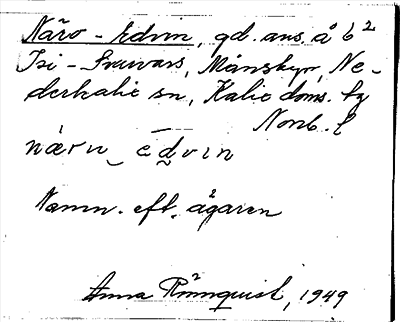 Näro-Edvin, gd. ans. å 6²
Isi-Snurvars, Månsbyn, Ne-
derkalix sn, Kalix doms. tg
Norrb. l
Namn. eft. ägaren
Anna Rönnquist, 1949